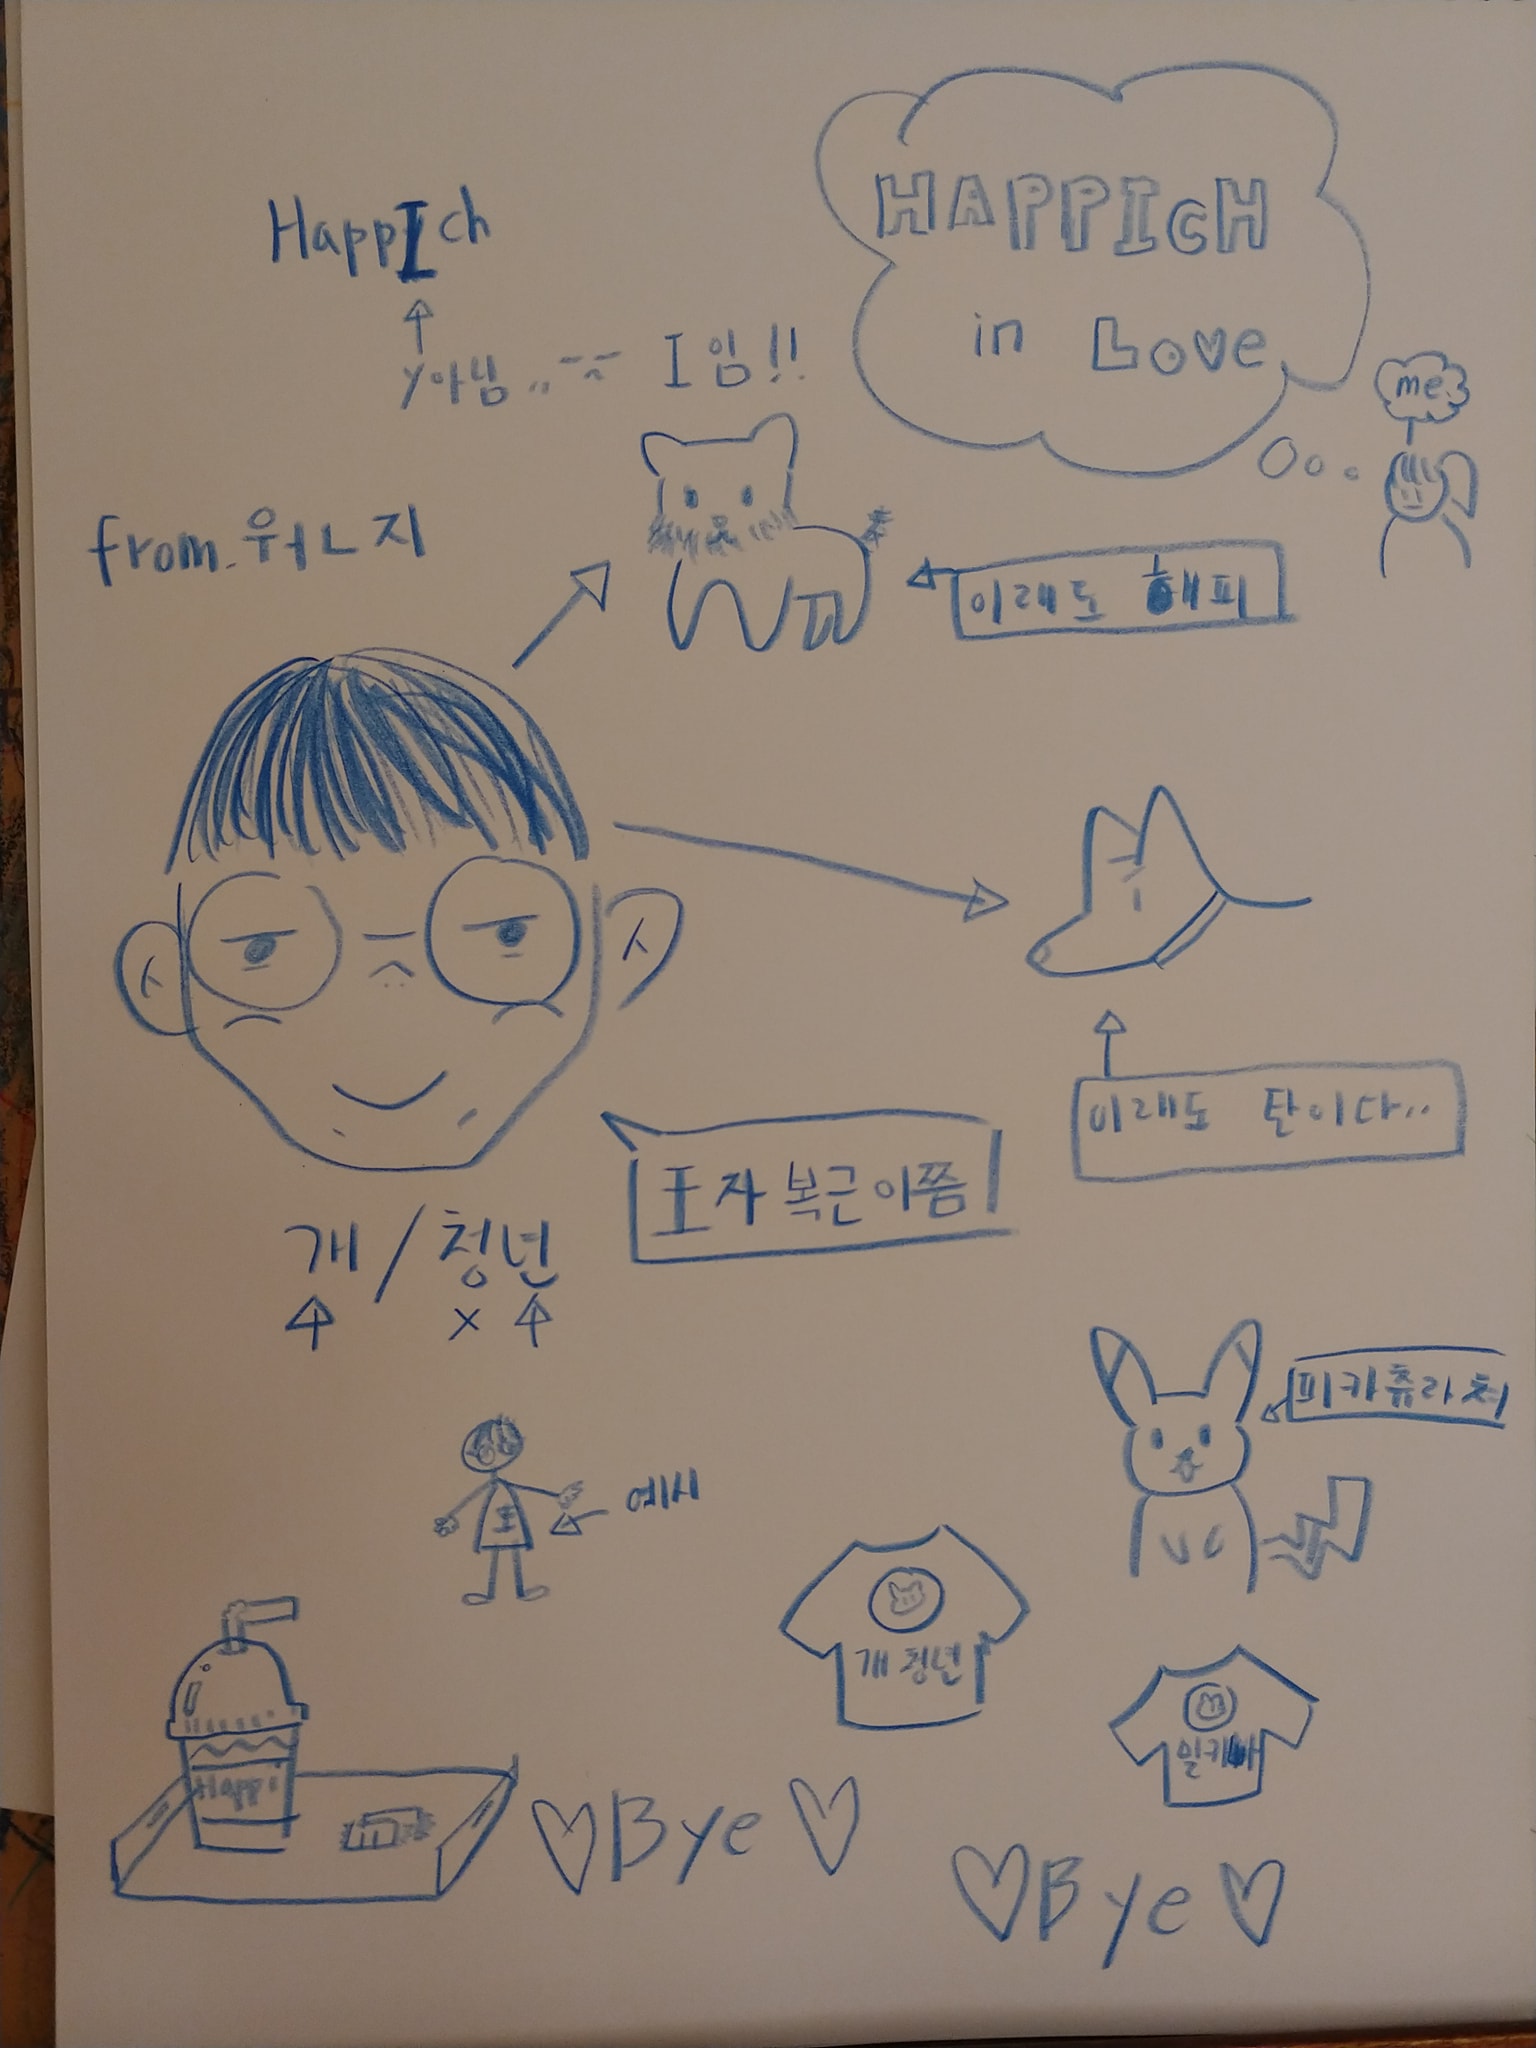 HappIch
y아님.. I임!!
HAPPIcH
in Love
me
from. 워ㄴ지
이래도 해피
이래도 탄이다..
王자복근이쯤
개/청년
x
피카츄라쳐
예시
王
개청년
밀키
Happi
Bye
Bye